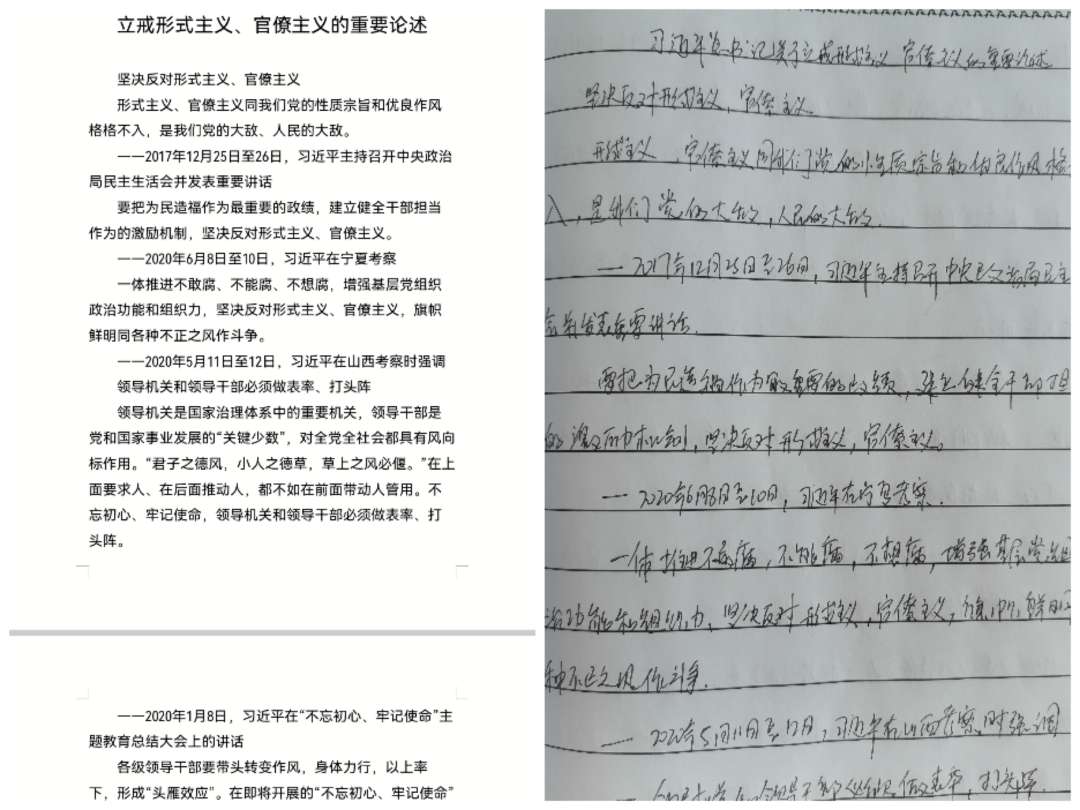 立戒形式主义、官僚主义的重要论述
坚决反对形式主义、官僚主义
形式主义、官僚主义同我们党的性质宗旨和优良作风
格格不入，是我们党的大敌、人民的大敌。
——2017年12月25日至26日，习近平主持召开中央政治
局民主生活会并发表重要讲话
要把为民造福作为最重要的政绩，建立健全干部担当
作为的激励机制，坚决反对形式主义、官僚主义。
——2020年6月8日至10日，习近平在宁夏考察
一体推进不敢腐、不能腐、不想腐，增强基层党组织
政治功能和组织力，坚决反对形式主义、官僚主义，旗帜
鲜明同各种不正之风作斗争。
——2020年5月11日至12日，习近平在山西考察时强调
领导机关和领导干部必须做表率、打头阵
领导机关是国家治理体系中的重要机关，领导干部是
党和国家事业发展的“关键少数”，对全党全社会都具有风向
标作用。“君子之德风，小人之德草，草上之风必偃。”在上
面要求人、在后面推动人，都不如在前面带动人管用。不
忘初心、牢记使命，领导机关和领导干部必须做表率、打
头阵。
——2020年1月8日，习近平在“不忘初心、牢记使命”主
题教育总结大会上的讲话
各级领导干部要带头转变作风，身体力行，以上率
下，形成“头雁效应”。在即将开展的“不忘初心、牢记使命”
习近平总书记关于立戒形式主义 官僚主义的重要论述
坚决反对形式主义，官僚主义
形式主义，官僚主义同我们党的性质宗旨和优良作风格
入，是我们党的大敌，人民的大敌.
— 2017年12月25日至26日，习近平主持召开中央政治局民主
会并发表重要讲话.
要把为民造福作为最重要的政绩，建立健全干部担
的激励机制，坚决反对形式主义，官僚主义。
— 2020年6月8日至10日，习近平在宁夏考察.
一体推进不敢腐，不能腐，不想腐，增强基层党组
治功能和组织力，坚决反对形式主义，官僚主义，旗帜鲜明
种不正之风作斗争.
— 2020年5月11日至12日，习近平在山西考察时强调
领导机关和领导干部必须做表率，打头阵.